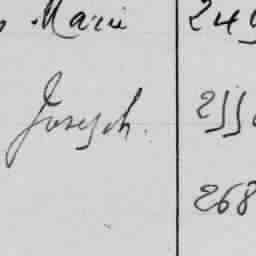 Marie 249
Joseph. 255
268